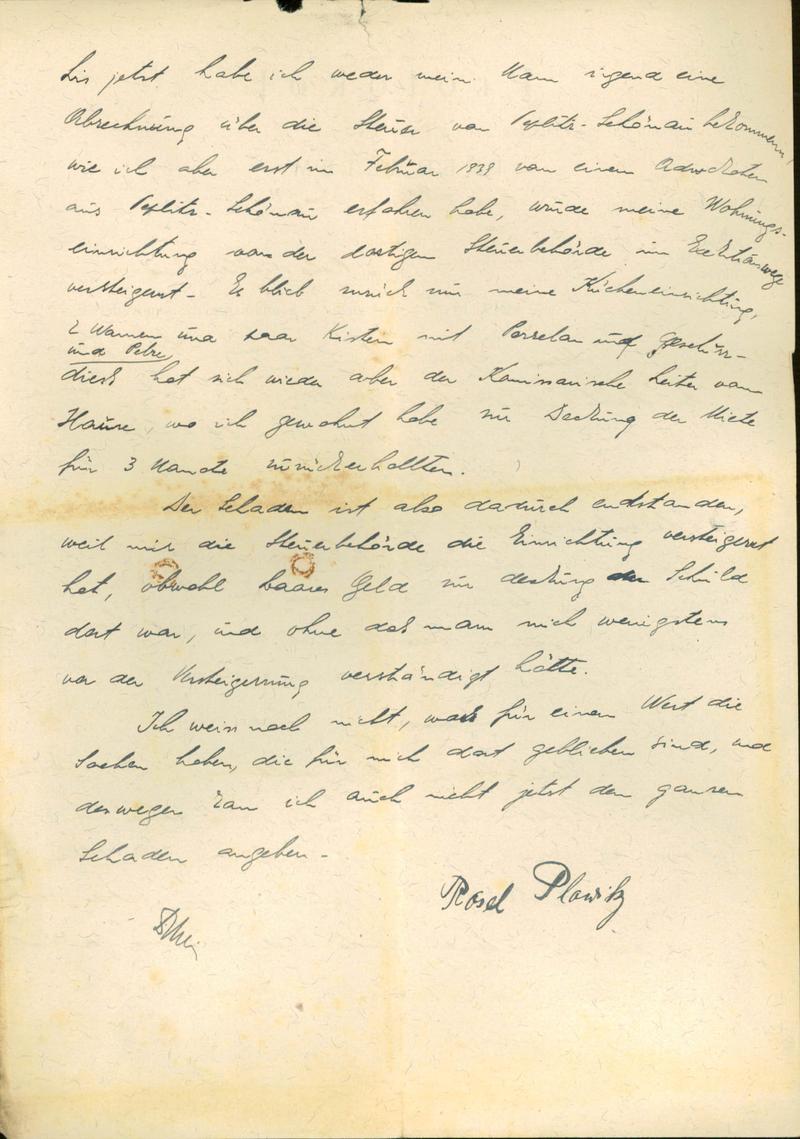 bis jetzt habe ich weder mein Mann irgend eine
Abrechnung über die Steuer von Teplitz-Schönau bekommen,
wie ich aber erst im Februar 1939 von einem Advokaten
aus Teplitz-Schönau erfahren habe, wurde meine Wohnungs-
einrichtung von der dortigen Steuerbehörde im Exekutionswege
versteigert - Es blieb zurück nur meine Kücheneinrichtung,
2 Wannen und paar Kisten mit Porzelan und Geschirr -
und Pelze,
dies hat sich wieder aber der Komissarische Leiter vom
Hause, wo ich gewohnt habe zur Deckung der Miete
für 3 Monate zurückerhallten.
Der Schaden ist also dadurch entstanden,
weil mir die Steuerbehörde die Einrichtung versteigert
hat, obwohl baares Geld zur deckung der Schuld
dort war, und ohne das man mich wenigstens
vor der Versteigerung verständigt hätte.
Ich weiss noch nicht, was für einen Wert die
Sachen haben, die für mich dort geblieben sind, und
deswegen kan ich auch nicht jetzt den ganzen
Schaden angeben -
Rosel Plowitz